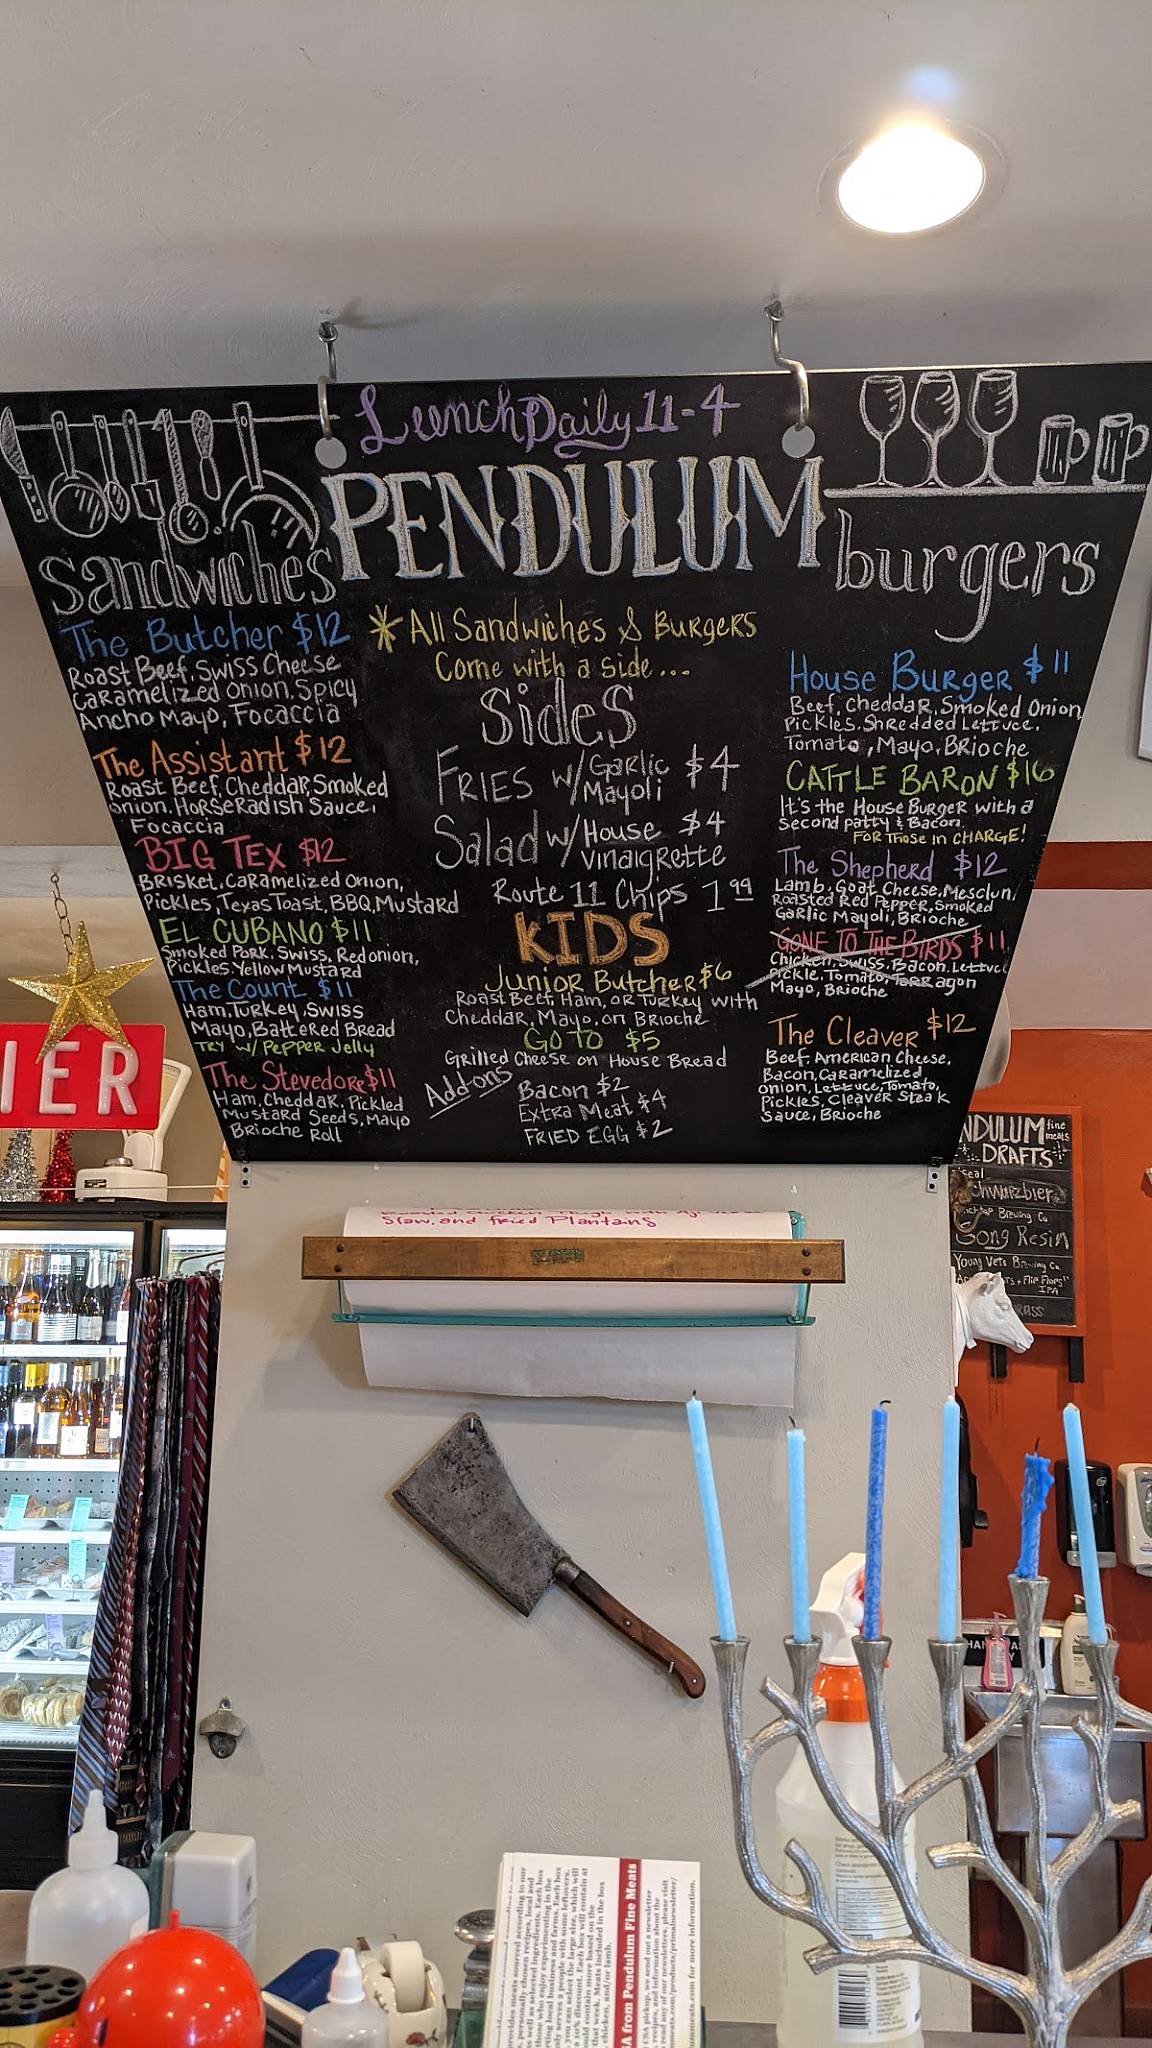 Lunch Daily 11-4
PENDULUM
sandwiches
The Butcher $12
Roast Beef, Swiss Cheese
Caramelized Onion, Spicy
Ancho Mayo, Focaccia
The Assistant $12
Roast Beef, Cheddar, Smoked
Onion, Horseradish Sauce,
Focaccia
BIG TEX $12
Brisket, Caramelized Onion,
Pickles, Texas Toast, BBQ, Mustard
EL CUBANO $11
Smoked Pork, Swiss, Red onion,
Pickles, Yellow Mustard
The Count $11
Ham, Turkey, Swiss
Mayo, Battered Bread
TRY w/ Pepper Jelly
The Stevedore $11
Ham, Cheddar, Pickled
Mustard Seeds, Mayo
Brioche Roll
*All Sandwiches & Burgers
Come with a side...
Sides
FRIES w/ Garlic Mayoli $4
Salad w/ House vinaigrette $4
Route 11 Chips 1.99
KIDS
Junior Butcher $6
Roast Beef, Ham, or Turkey with
Cheddar, Mayo, on Brioche
GO TO $5
Grilled Cheese on House Bread
Add-ons
Bacon $2
Extra Meat $4
FRIED EGG $2
burgers
House Burger $11
Beef, Cheddar, Smoked Onion
Pickles, Shredded Lettuce,
Tomato, Mayo, Brioche
CATTLE BARON $16
It's the House Burger with a
Second patty & Bacon.
FOR Those in CHARGE!
The Shepherd $12
Lamb, Goat Cheese, Mesclun,
Roasted Red Pepper, Smoked
Garlic Mayoli, Brioche
GONE TO THE BIRDS $11
Chicken, Swiss, Bacon, Lettuce
Pickle, Tomato, Tarragon
Mayo, Brioche
The Cleaver $12
Beef, American Cheese,
Bacon, Caramelized
Onion, Lettuce, Tomato,
Pickles, Cleaver Steak
Sauce, Brioche
IER
Slaw, and fried Plantains
NDULUM fine meats
DRAFTS
Schwarzbier
Brewing Co
Song Resin
Young Vets Brewing Co.
+ Flip Flops"
IPA
A from Pendulum Fine Meats